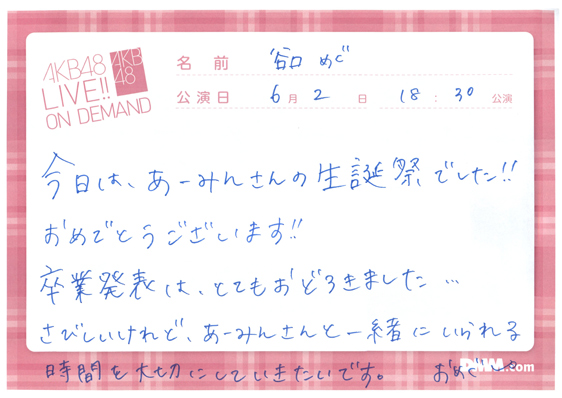 AKB48
LIVE!!
ON DEMAND
AKB
48
名前 谷口 めぐ
公演日 6月 2日 18:30 公演
今日は、あーみんさんの生誕祭でした!!
おめでとうございます!!
卒業発表は、とてもおどろきました…
さびしいけれど、あーみんさんと一緒にいられる
時間を大切にしていきたいです。 おめぐ
DMM.com